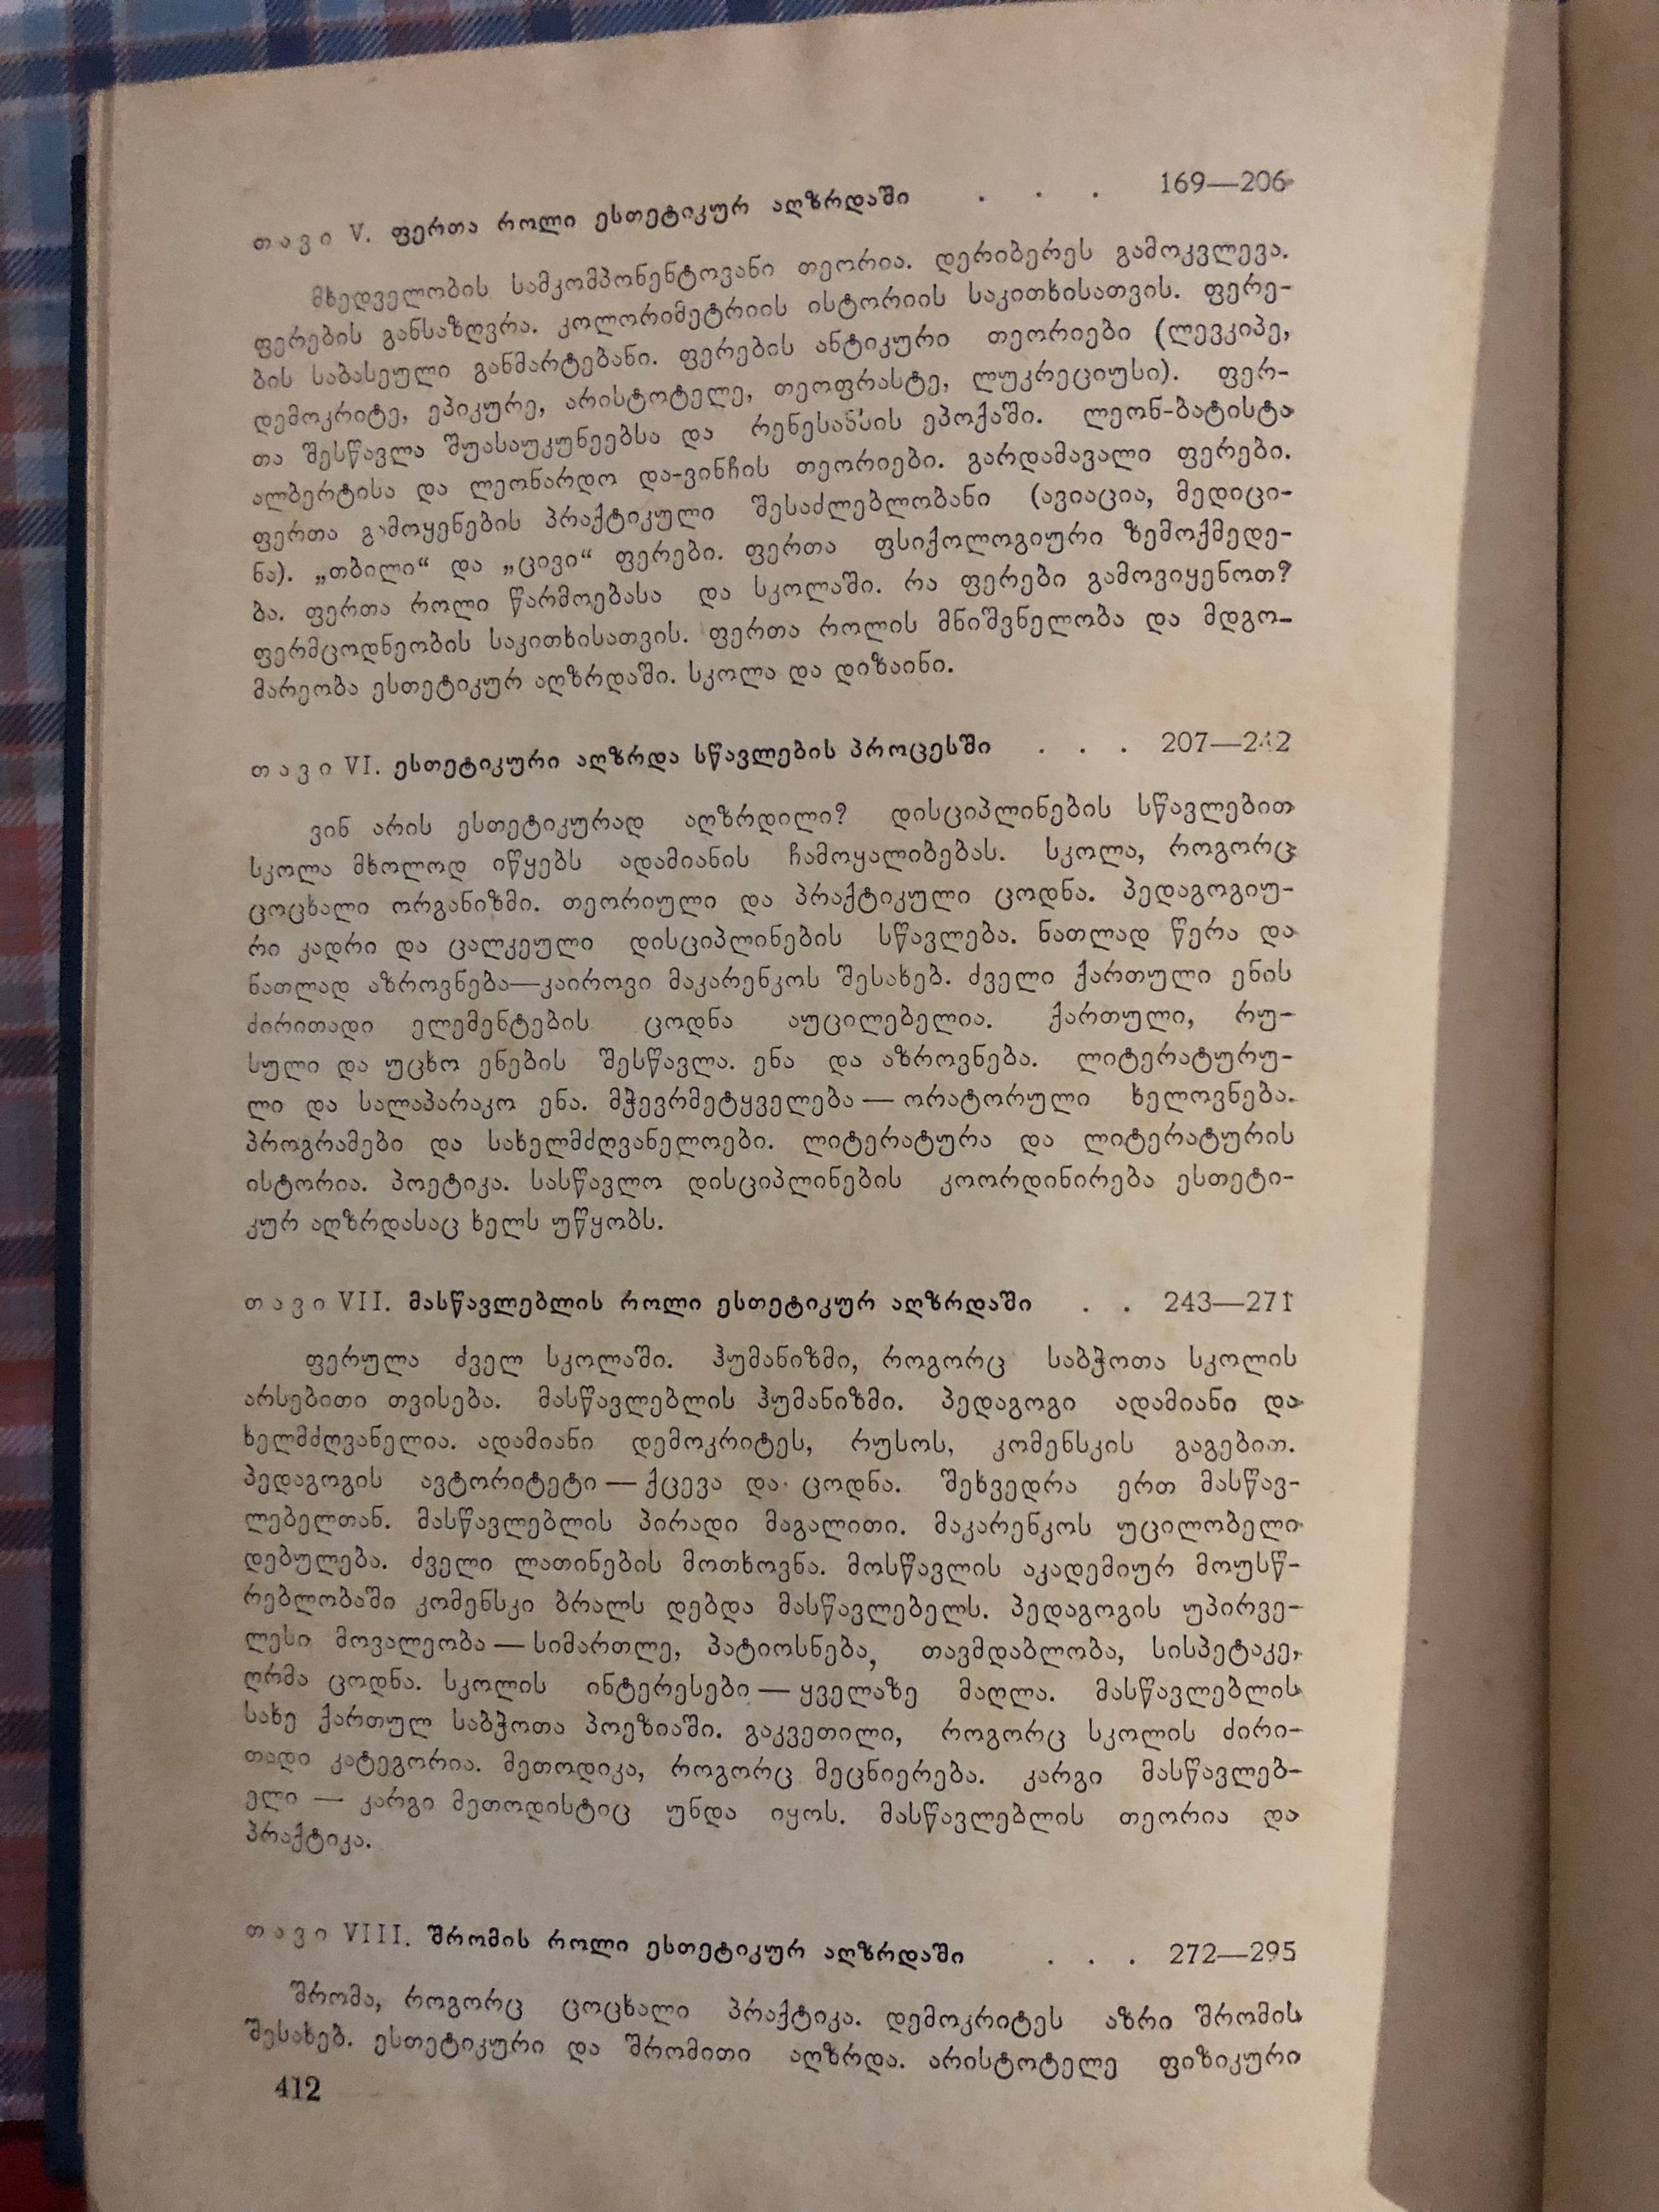 თავი V. ფერთა როლი ესთეტიკურ აღზრდაში . . . 169—206
მხედველობის სამკომპონენტოვანი თეორია. დერიბერეს გამოკვლევა.
ფერების განსაზღვრა. კოლორიმეტრიის ისტორიის საკითხისათვის. ფერე-
ბის საბასეული განმარტებანი. ფერების ანტიკური თეორიები (ლევკიპე,
დემოკრიტე, ეპიკურე, არისტოტელე, თეოფრასტე, ლუკრეციუსი). ფერ-
თა შესწავლა შუასაუკუნეებსა და რენესანსის ეპოქაში. ლეონ-ბატისტა
ალბერტისა და ლეონარდო და-ვინჩის თეორიები. გარდამავალი ფერები.
ფერთა გამოყენების პრაქტიკული შესაძლებლობანი (ავიაცია, მედიცი-
ნა). „თბილი“ და „ცივი“ ფერები. ფერთა ფსიქოლოგიური ზემოქმედე-
ბა. ფერთა როლი წარმოებასა და სკოლაში. რა ფერები გამოვიყენოთ?
ფერმცოდნეობის საკითხისათვის. ფერთა როლის მნიშვნელობა და მდგო-
მარეობა ესთეტიკურ აღზრდაში. სკოლა და დიზაინი.
თავი VI. ესთეტიკური აღზრდა სწავლების პროცესში . . . 207—242
ვინ არის ესთეტიკურად აღზრდილი? დისციპლინების სწავლებით
სკოლა მხოლოდ იწყებს ადამიანის ჩამოყალიბებას. სკოლა, როგორც
ცოცხალი ორგანიზმი. თეორიული და პრაქტიკული ცოდნა. პედაგოგიუ-
რი კადრი და ცალკეული დისციპლინების სწავლება. ნათლად წერა და
ნათლად აზროვნება—კაიროვი მაკარენკოს შესახებ. ძველი ქართული ენის
ძირითადი ელემენტების ცოდნა აუცილებელია. ქართული, რუ-
სული და უცხო ენების შესწავლა. ენა და აზროვნება. ლიტერატურუ-
ლი და სალაპარაკო ენა. მჭევრმეტყველება — ორატორული ხელოვნება.
პროგრამები და სახელმძღვანელოები. ლიტერატურა და ლიტერატურის
ისტორია. პოეტიკა. სასწავლო დისციპლინების კოორდინირება ესთეტი-
კურ აღზრდასაც ხელს უწყობს.
თავი VII. მასწავლებლის როლი ესთეტიკურ აღზრდაში . . 243—271
ფერულა ძველ სკოლაში. ჰუმანიზმი, როგორც საბჭოთა სკოლის
არსებითი თვისება. მასწავლებლის ჰუმანიზმი. პედაგოგი ადამიანი და
ხელმძღვანელია. ადამიანი დემოკრიტეს, რუსოს, კომენსკის გაგებით.
პედაგოგის ავტორიტეტი — ქცევა და ცოდნა. შეხვედრა ერთ მასწავ-
ლებელთან. მასწავლებლის პირადი მაგალითი. მაკარენკოს უცილობელი
დებულება. ძველი ლათინების მოთხოვნა. მოსწავლის აკადემიურ მოუსწ-
რებლობაში კომენსკი ბრალს დებდა მასწავლებელს. პედაგოგის უპირვე-
ლესი მოვალეობა — სიმართლე, პატიოსნება, თავმდაბლობა, სისპეტაკე,
ღრმა ცოდნა. სკოლის ინტერესები — ყველაზე მაღლა. მასწავლებლის
სახე ქართულ საბჭოთა პოეზიაში. გაკვეთილი, როგორც სკოლის ძირი-
თადი კატეგორია. მეთოდიკა, როგორც მეცნიერება. კარგი მასწავლებ-
ელი — კარგი მეთოდისტიც უნდა იყოს. მასწავლებლის თეორია და
პრაქტიკა.
თავი VIII. შრომის როლი ესთეტიკურ აღზრდაში . . . 272—295
შრომა, როგორც ცოცხალი პრაქტიკა. დემოკრიტეს აზრი შრომის
შესახებ. ესთეტიკური და შრომითი აღზრდა. არისტოტელე ფიზიკური
412